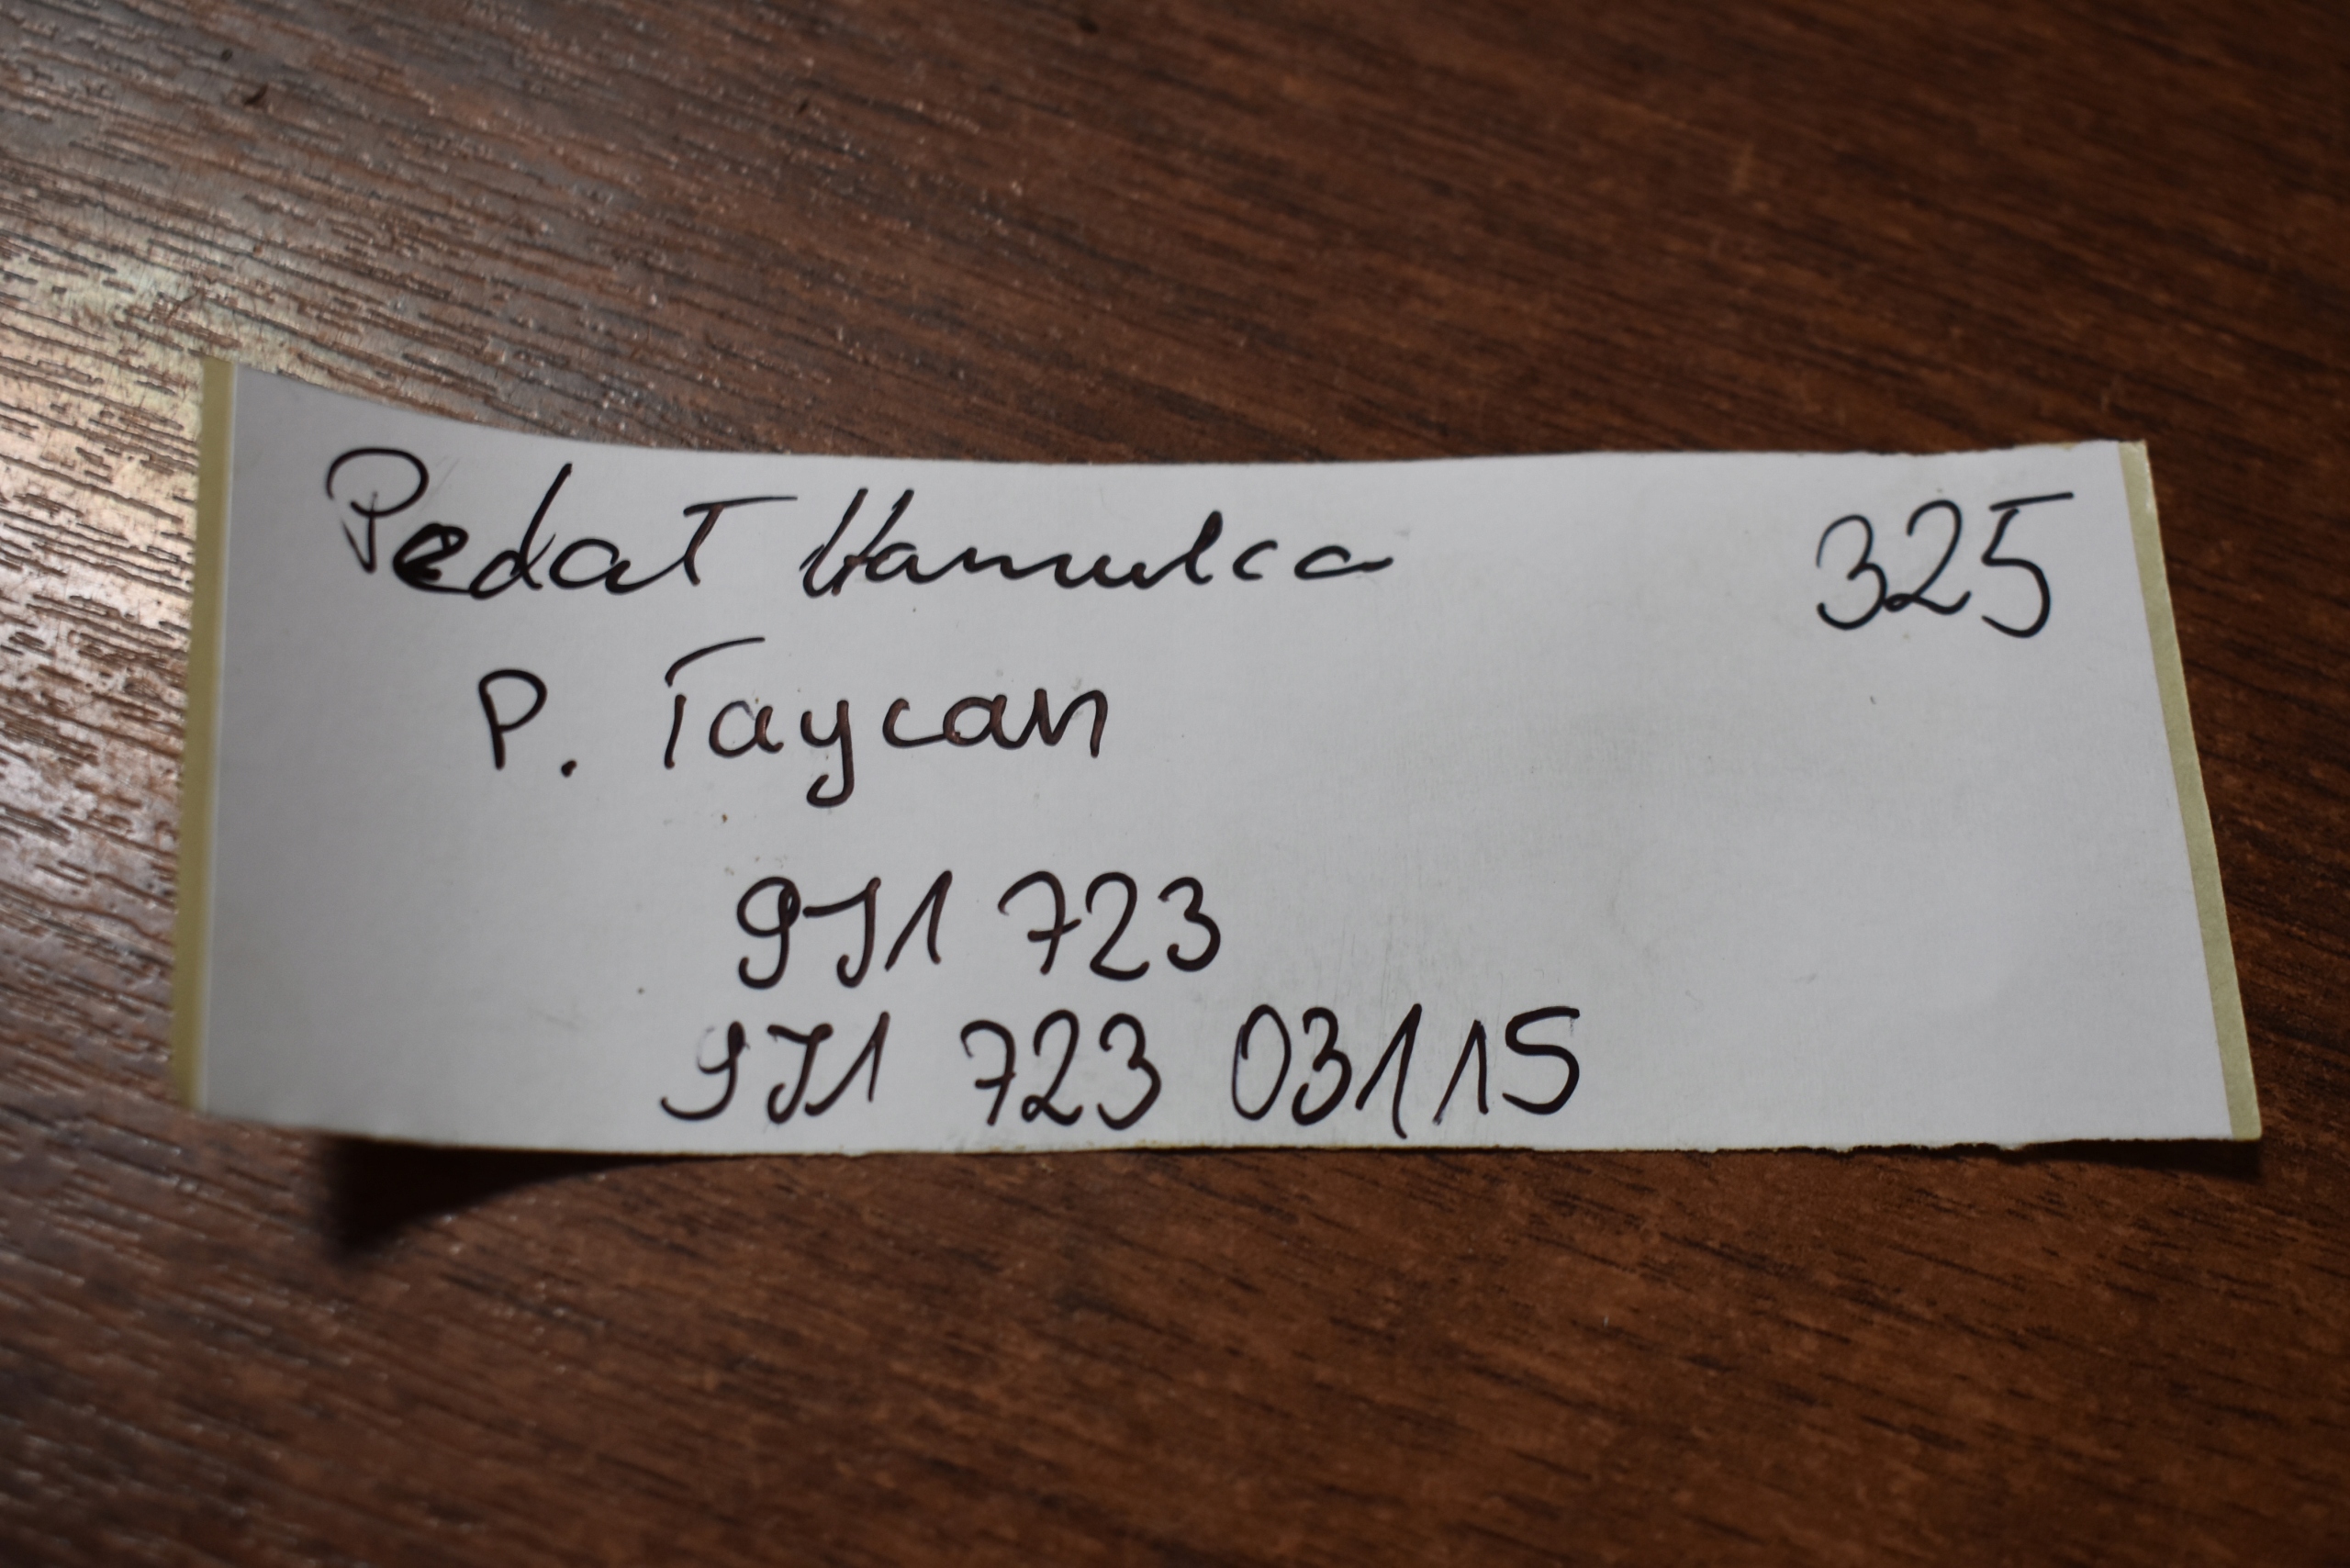 Pedał Hamulca 325
P. Taycan
9J1 723
9J1 723 03115